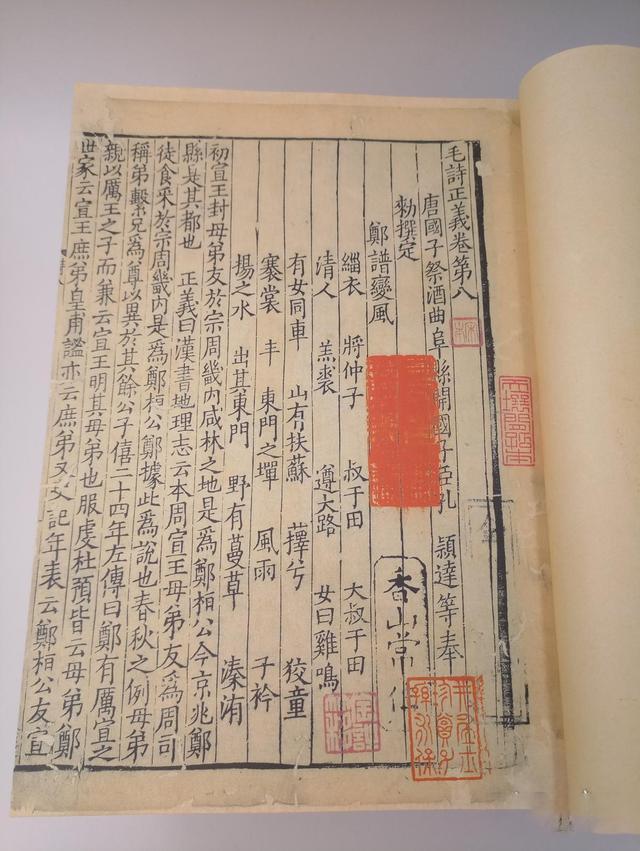 毛詩正義卷第八
唐國子祭酒曲阜縣開國子臣孔 穎達等奉
勑撰定
鄭譜變風
緇衣 將仲子 叔于田 大叔于田
清人 羔裘 遵大路 女曰雞鳴
有女同車 山有扶蘇 蘀兮 狡童
褰裳 丰 東門之墠 風雨 子衿
揚之水 出其東門 野有蔓草 溱洧
初宣王封母弟友於宗周畿內咸林之地是爲鄭桓公今京兆鄭
縣是其都也 正義曰漢書地理志云本周宣王母弟友爲周司
徒食采於宗周畿內是爲鄭桓公鄭據此爲說也春秋之例母弟
稱弟繫兄爲尊以異於其餘公子僖二十四年左傳曰鄭有厲宣之
親以厲王之子而兼云宣王明其母弟也服虔杜預皆云母弟鄭
世家云宣王庶弟皇甫謐亦云庶弟又史記年表云鄭桓公友宣
香山常住